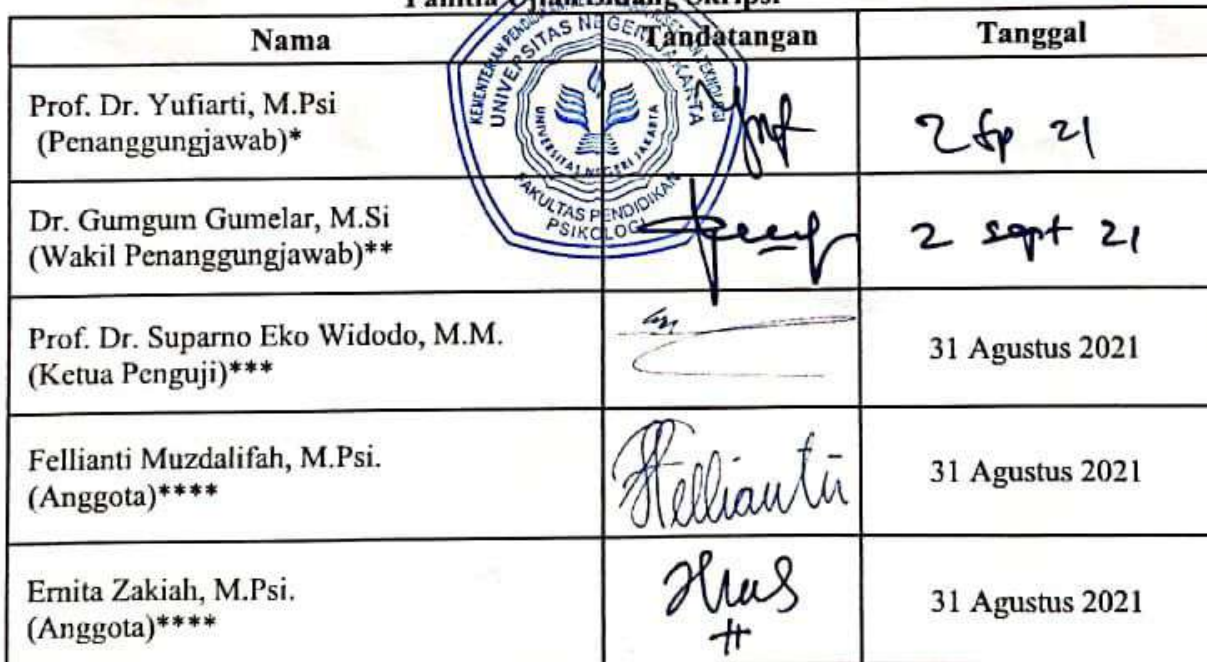 Panitia Ujian/Sidang Skripsi
Nama Tandatangan Tanggal
Prof. Dr. Yufiarti, M.Psi
(Penanggungjawab)*
2 Sp 21
Dr. Gumgum Gumelar, M.Si
(Wakil Penanggungjawab)**
2 sept 21
Prof. Dr. Suparno Eko Widodo, M.M.
(Ketua Penguji)***
31 Agustus 2021
Fellianti Muzdalifah, M.Psi.
(Anggota)****
Fellianti
31 Agustus 2021
Ernita Zakiah, M.Psi.
(Anggota)****
31 Agustus 2021
UNIVERSITAS NEGERI JAKARTA
UNIVERSITAS NEGERI JAKARTA
FAKULTAS PENDIDIKAN
PSIKOLOGI